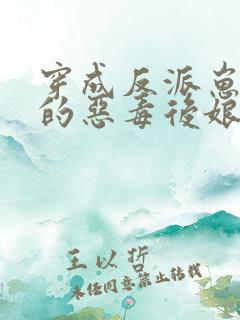 穿成反派崽
的惡毒後娘
王以哲
未经同意禁止转载